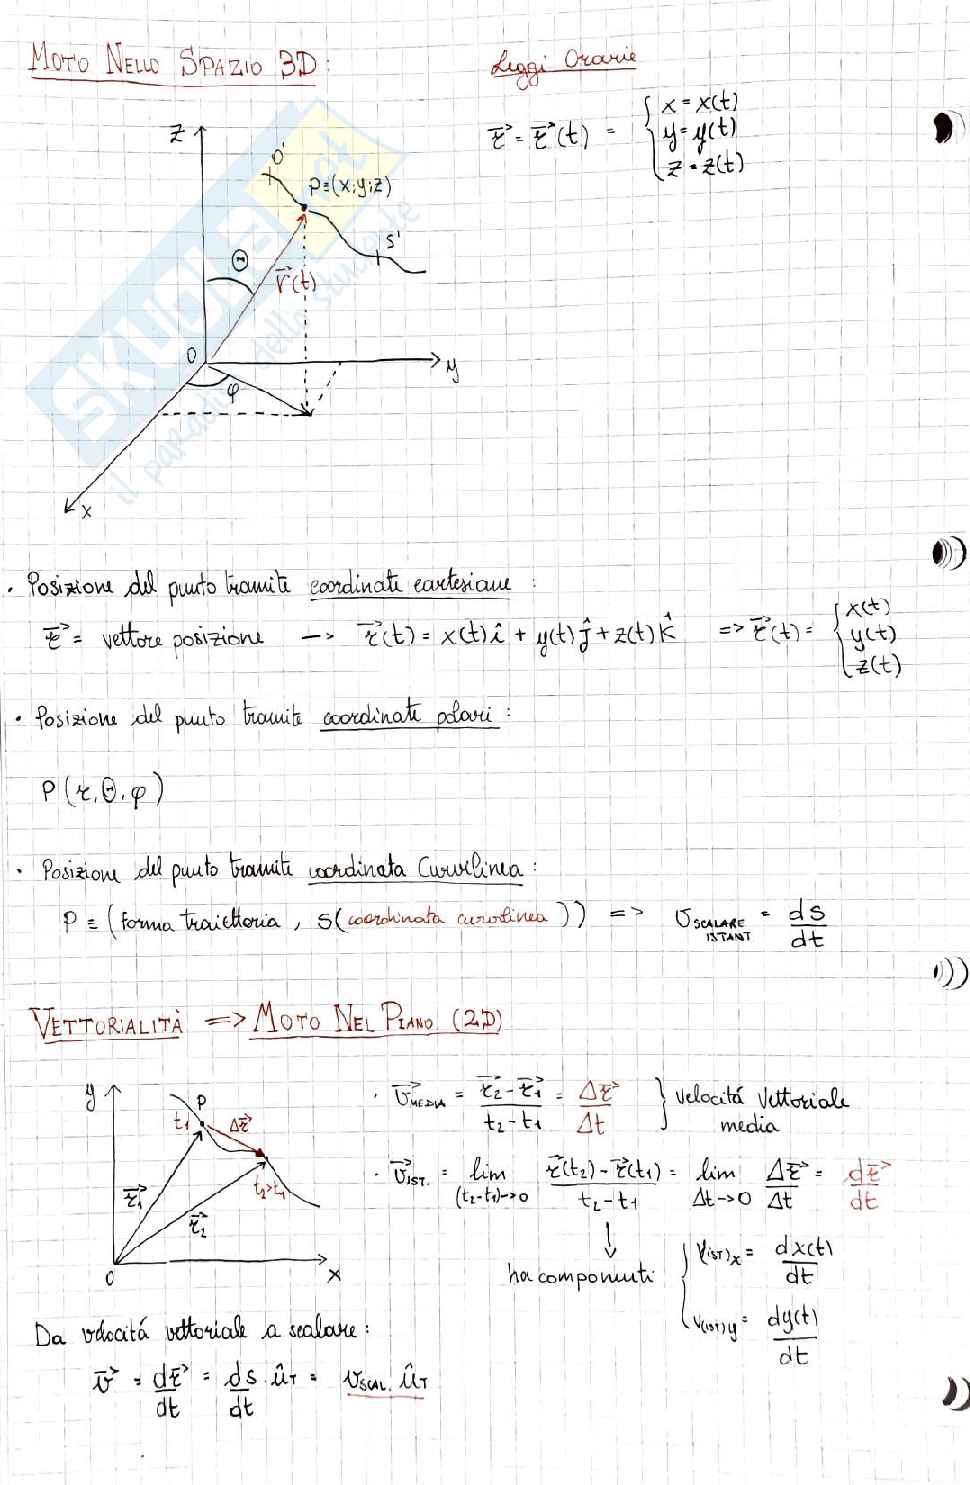 MOTO NELLO SPAZIO 3D:
Leggi Orarie
r⃗ = r⃗(t) = { x = x(t)
y = y(t)
z = z(t)
z
O'
P≡(x;y;z)
S'
Θ
r⃗(t)
O
y
φ
x
SKUOLA.net
il paradiso dello studente
· Posizione del punto tramite coordinate cartesiane :
r⃗ = vettore posizione —> r⃗(t) = x(t)î + y(t)ĵ + z(t)k̂ => r⃗(t) = { x(t)
y(t)
z(t)
· Posizione del punto tramite coordinate polari :
P(r, Θ, φ)
· Posizione del punto tramite coordinata Curvilinea :
P ≡ (forma traiettoria , S(coordinata curvilinea)) => v SCALARE ISTANT = ds/dt
VETTORIALITÀ => MOTO NEL PIANO (2D)
y
P
t1
Δr⃗
t2>t1
r⃗1
r⃗2
O
x
· v⃗MEDIA = (r⃗2 - r⃗1)/(t2 - t1) = Δr⃗/Δt } velocitá Vettoriale media
· v⃗IST. = lim (t2-t1)->0 (r⃗(t2) - r⃗(t1))/(t2 - t1) = lim Δt->0 Δr⃗/Δt = dr⃗/dt
↓
ha componenti { V(IST)x = dx(t)/dt
V(IST)y = dy(t)/dt
Da velocitá vettoriale a scalare :
v⃗ = dr⃗/dt = ds/dt · ûT = vSCAL. ûT